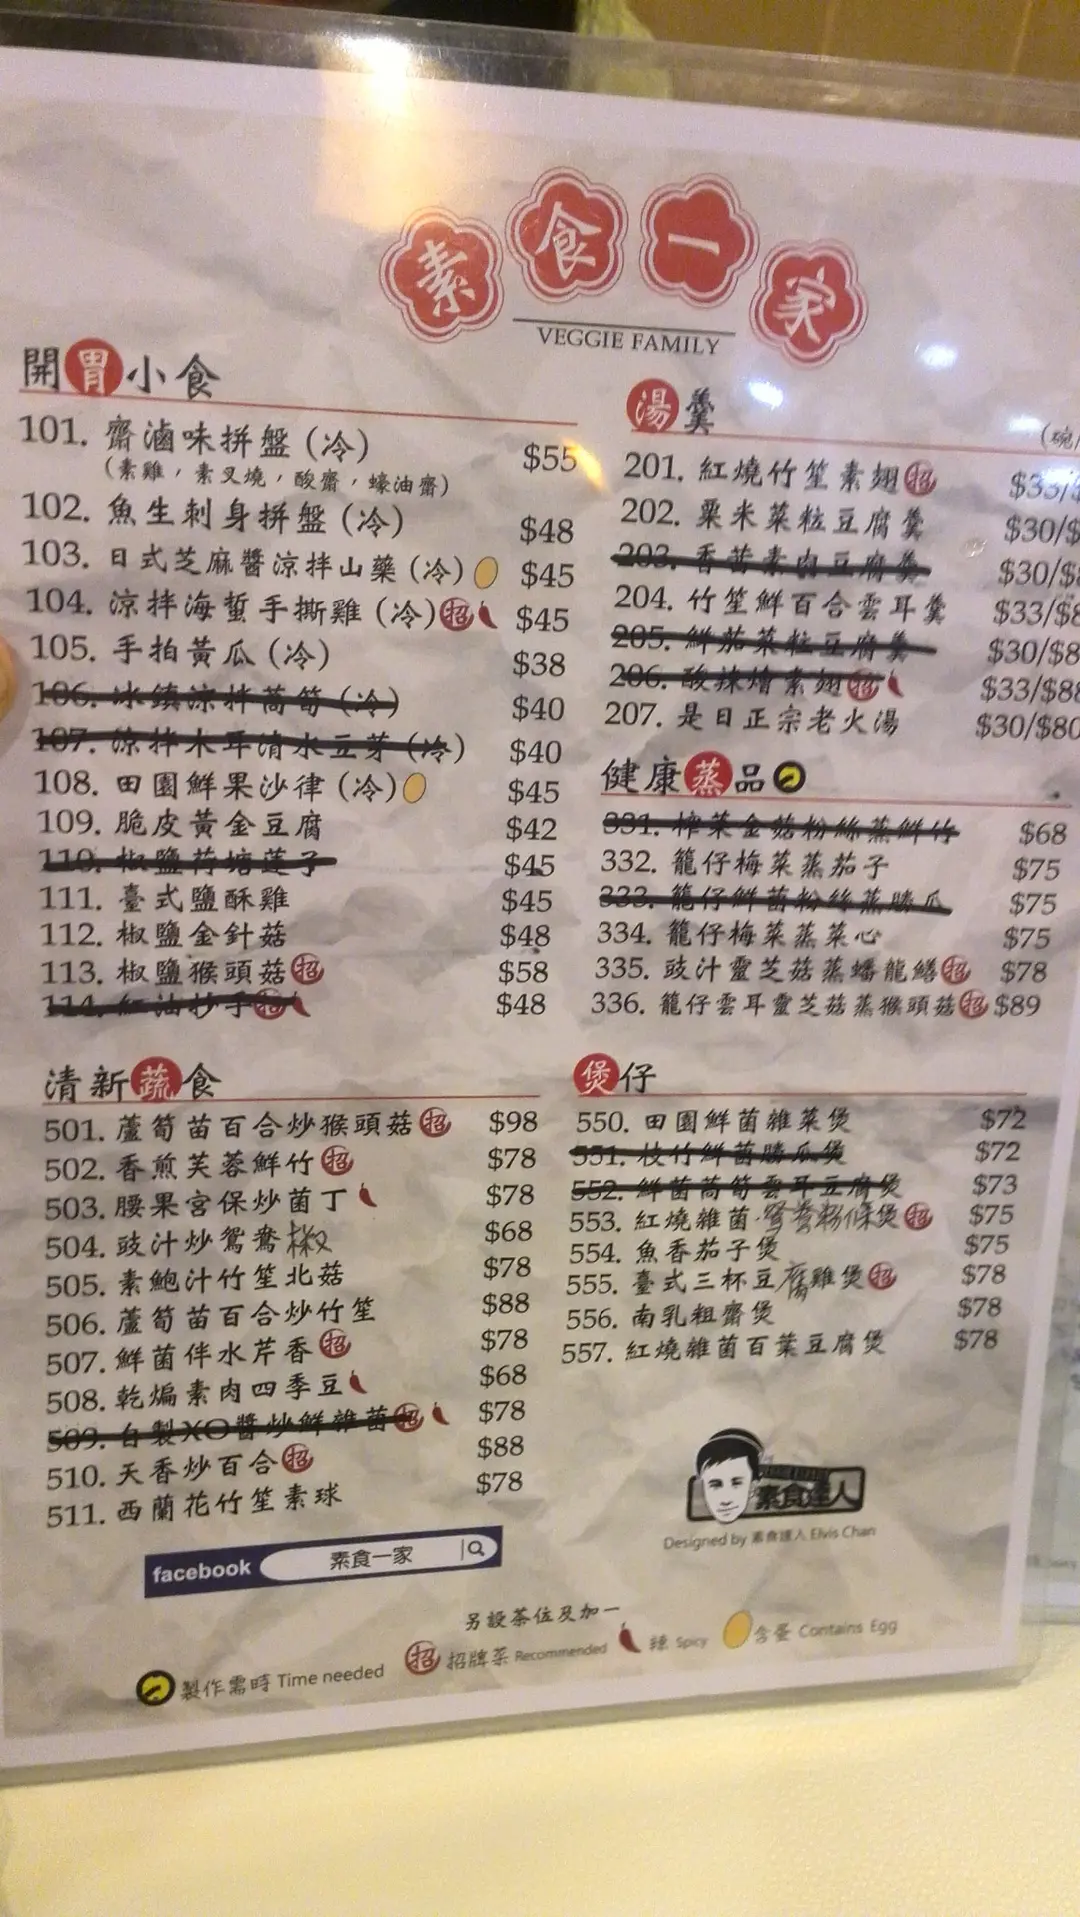 素食一家
VEGGIE FAMILY
開胃小食
101. 齋滷味拼盤 (冷) $55
(素雞，素叉燒，酸齋，蠔油齋)
102. 魚生刺身拼盤 (冷) $48
103. 日式芝麻醬涼拌山藥 (冷) $45
104. 涼拌海蜇手撕雞 (冷) 招 $45
105. 手拍黃瓜 (冷) $38
106. 冰鎮涼拌萵筍 (冷) $40
107. 涼拌木耳清水豆芽 (冷) $40
108. 田園鮮果沙律 (冷) $45
109. 脆皮黃金豆腐 $42
110. 椒鹽荷塘蓮子 $45
111. 臺式鹽酥雞 $45
112. 椒鹽金針菇 $48
113. 椒鹽猴頭菇 招 $58
114. 紅油抄手 招 $48
湯羹
(碗/
201. 紅燒竹笙素翅 招 $33/$
202. 粟米菜粒豆腐羹 $30/$
203. 香茜素肉豆腐羹 $30/$8
204. 竹笙鮮百合雲耳羹 $33/$8
205. 鮮茄菜粒豆腐羹 $30/$8
206. 酸辣燴素翅 招 $33/$88
207. 是日正宗老火湯 $30/$80
健康蒸品
331. 榨菜金菇粉絲蒸鮮竹 $68
332. 籠仔梅菜蒸茄子 $75
333. 籠仔鮮菌粉絲蒸勝瓜 $75
334. 籠仔梅菜蒸菜心 $75
335. 豉汁靈芝菇蒸蟠龍鱔 招 $78
336. 籠仔雲耳靈芝菇蒸猴頭菇 招 $89
清新蔬食
501. 蘆筍苗百合炒猴頭菇 招 $98
502. 香煎芙蓉鮮竹 招 $78
503. 腰果宮保炒菌丁 $78
504. 豉汁炒鴛鴦椒 $68
505. 素鮑汁竹笙北菇 $78
506. 蘆筍苗百合炒竹笙 $88
507. 鮮菌伴水芹香 招 $78
508. 乾煸素肉四季豆 $68
509. 自製XO醬炒鮮雜菌 招 $78
510. 天香炒百合 招 $88
511. 西蘭花竹笙素球 $78
煲仔
550. 田園鮮菌雜菜煲 $72
551. 枝竹鮮菌勝瓜煲 $72
552. 鮮菌萵筍雲耳豆腐煲 $73
553. 紅燒雜菌鴛鴦粉條煲 招 $75
554. 魚香茄子煲 $75
555. 臺式三杯豆腐雞煲 招 $78
556. 南乳粗齋煲 $78
557. 紅燒雜菌百葉豆腐煲 $78
素食達人
Designed by 素食達人 Elvis Chan
facebook 素食一家
另設茶位及加一
製作需時 Time needed 招 招牌菜 Recommended 辣 Spicy 含蛋 Contains Egg